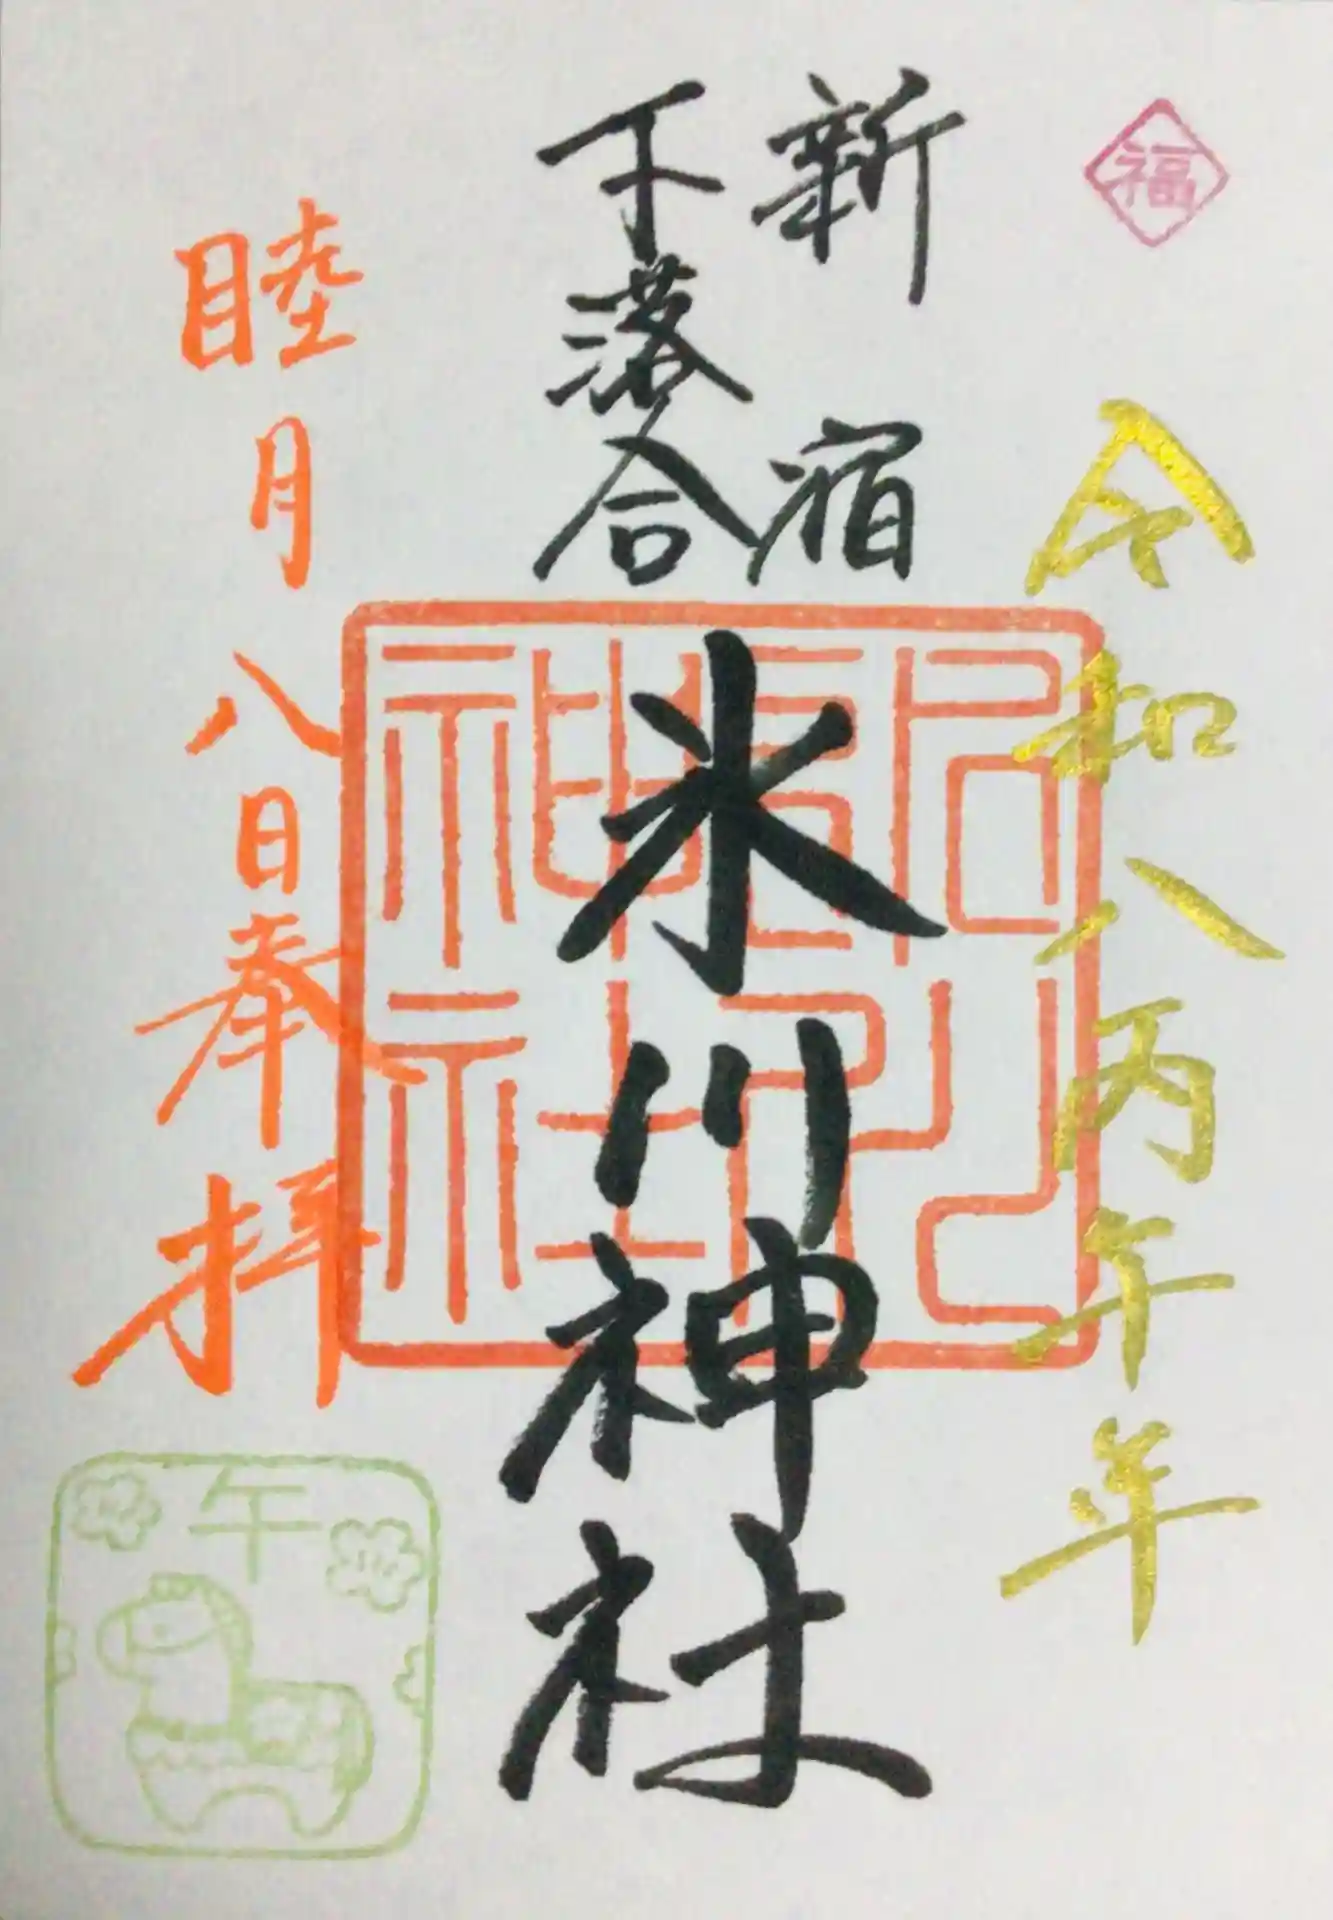 福
令和八丙午年
新宿
下落合
氷川神社
睦月八日奉拝
午